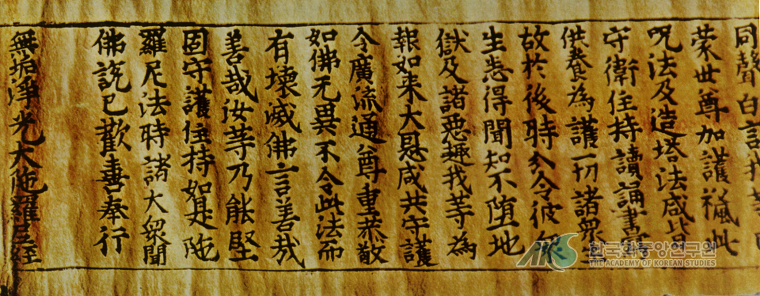 同聲白言我等
蒙世尊加護此
呪法及造塔法咸共
守衛住持讀誦書
供養為護一切諸衆
故於後時分令彼衆
生悉得聞知不墮地
獄及諸惡趣我等為
報如来大恩咸共守護
令廣流通尊重恭敬
如佛无異不令此法而
有壞滅佛言善哉
善哉汝等乃能堅
固守護住持如是陁
羅尼法時諸大衆聞
佛說已歡喜奉行
無垢淨光大陁羅尼經
한국학중앙연구원
THE ACADEMY OF KOREAN STUDIES